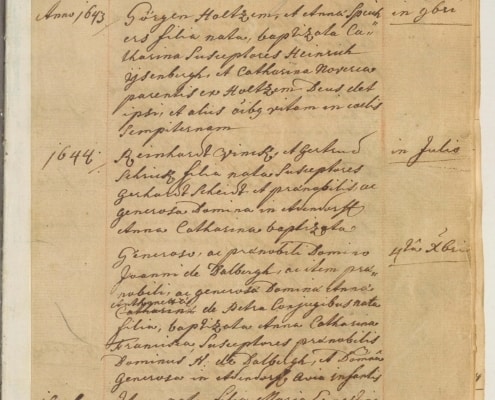 Anno 1643 Görgen Holtzem, et Anna Speich in 9bri
ers filia nata, baptizata Ca
tharina Susceptores Heinrich
Ysenbergh, et Catharina Noverca
parentis ex Holtzem Deus det
ipsi, et aliis oibq vitam in coelis
Sempiternam
1644: Reinhardt Vinck, et Gertrud in Julio
filia nata Susceptores
Gerhardt Scheidt et praenobilis ac
generosa Domina in Adendorff
Anna Catharina baptizata
Generoso, ac praenobili Domino 4ta Xbris
Joanni de Dalbergh, ac item prae
nobili, ac generosa Domina Anna
Anthonetta
Catharina de Petra Conjugibus nata
filia, baptizata Anna Catharina
Francisca Susceptores praenobilis
Dominus H. de Dalbergh, et Domina
Generosa in Adendorff, Avia infantis